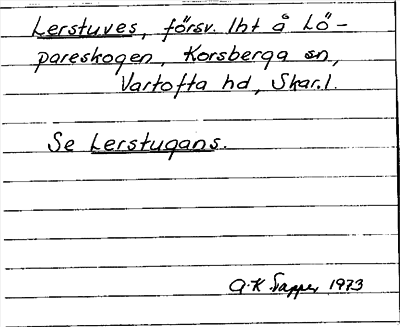 Lerstuves, försv. lht å Lö-
pareskogen, Korsberga sn,
Vartofta hd, Skar.l.
Se Lerstugans.
A-K Tapper 1973